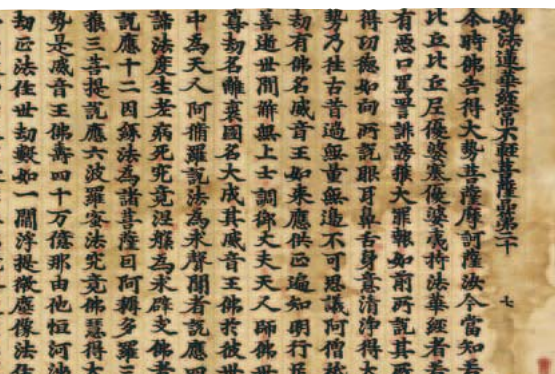 妙法蓮華經常不輕菩薩品第二十 七
尒時佛告得大勢菩薩摩訶薩汝今當知若
比丘比丘尼優婆塞優婆夷持法華經者若
有惡口罵詈誹謗獲大罪報如前所說其所
得功德如向所說眼耳鼻舌身意清淨得大
勢乃往古昔過無量無邊不可思議阿僧祇
劫有佛名威音王如來應供正遍知明行足
善逝世間解無上士調御丈夫天人師佛世
尊劫名離衰國名大成其威音王佛於彼世
中為天人阿脩羅說法為求聲聞者說應四
諦法度生老病死究竟涅槃為求辟支佛者
說應十二因緣法為諸菩薩因阿耨多羅三
藐三菩提說應六波羅蜜法究竟佛慧得大
勢是威音王佛壽四十万億那由他恒河沙
劫正法住世劫數如一閻浮提微塵像法住